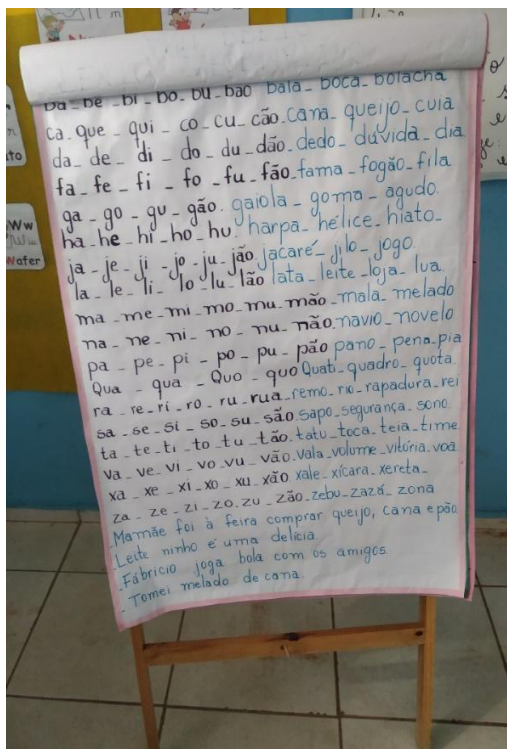 ba - be - bi - bo - bu - bão bala - boca - bolacha
ca - que - qui - co - cu - cão. cana - queijo - cuia
da - de - di - do - du - dão. dedo - dúvida - dia
fa - fe - fi - fo - fu - fão - fama - fogão - fila
ga - go - gu - gão. gaiola - goma - agudo.
ha - he - hi - ho - hu. harpa - hélice - hiato -
ja - je - ji - jo - ju - jão. jacaré - jiló - jogo
la - le - li - lo - lu - lão lata - leite - loja - lua.
ma - me - mi - mo - mu - mão - mala - melado
na - ne - ni - no - nu - não. navio - novelo
pa - pe - pi - po - pu - pão pano - pena - pia
Qua - qua - Quo - quo Quati - quadro - quota
ra - re - ri - ro - ru - rua - remo - rio - rapadura - rei
sa - se - si - so - su - são. sapo - segurança - sono.
ta - te - ti - to - tu - tão. tatu - toca - teia - time
va - ve - vi - vo - vu - vão. vala - volume - vitória - voa
xa - xe - xi - xo - xu - xão. xale - xícara - xereta -
za - ze - zi - zo. zu - zão - zebu - zazá - zona
.Mamãe foi à feira comprar queijo, cana e pão
.Leite ninho é uma delícia.
.Fábricio joga bola com os amigos
- Tomei melado de cana.
Ww